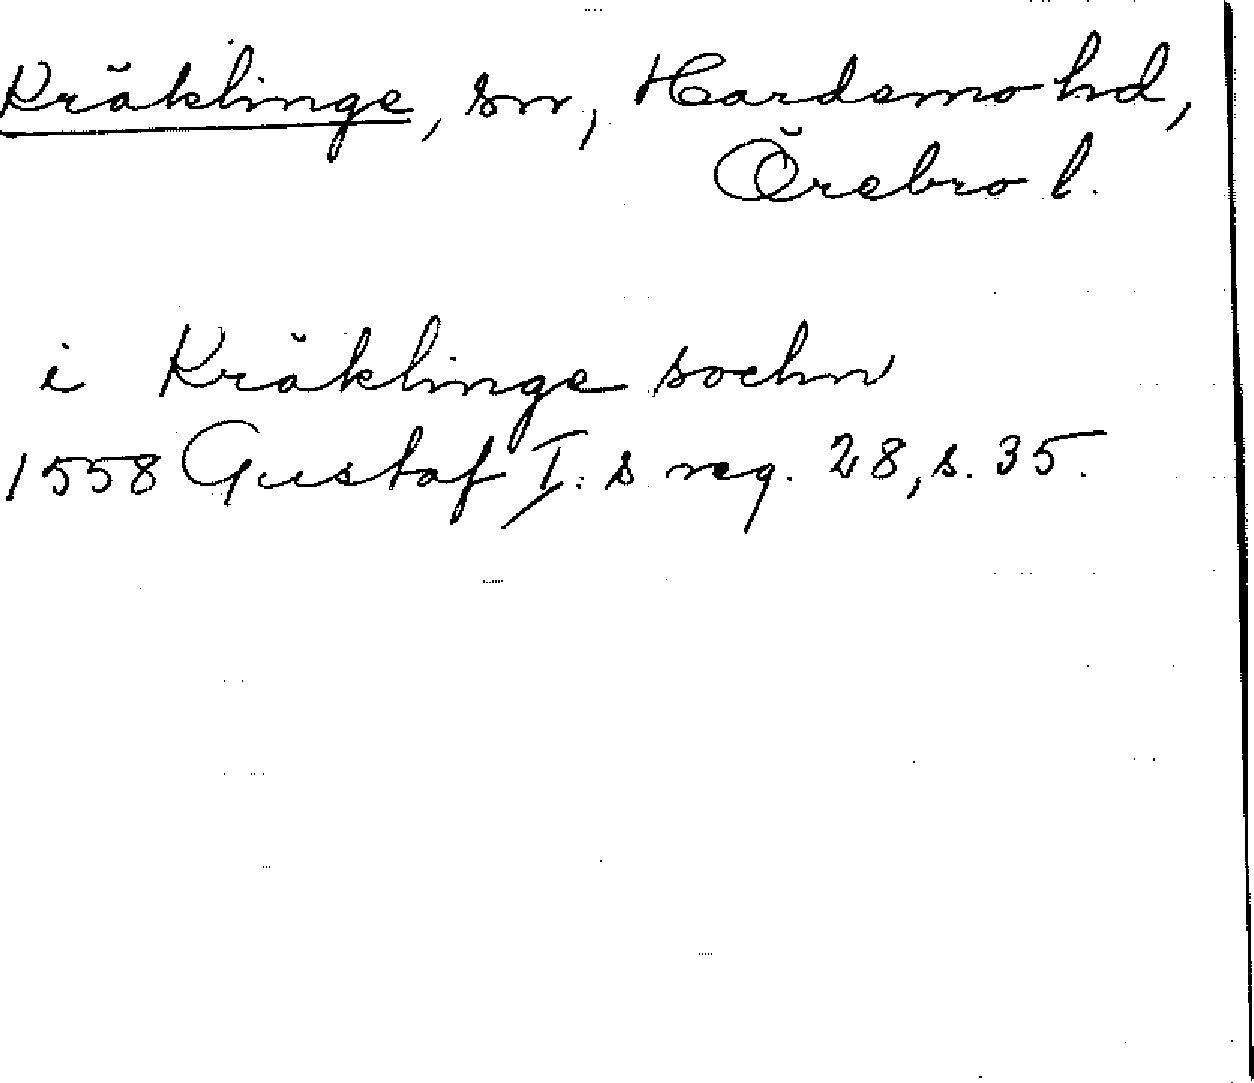 Kräklinge, sn, Hardemo hd,
Örebro l.
i Kräklinge sochn
1558 Gustaf I:s reg. 28, s. 35.